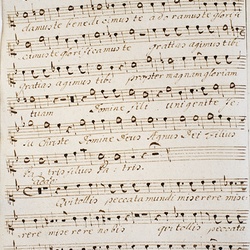 damuste benedicimuste adoramuste glori
camuste glorificamuste gratias agimus tibi
gratias agimus tibi propter magnam gloriam
tuam Domine fili unigenite Je
su Christe Domine Deus Agnus Dei Filius
Patris filius Patris.
Qui tollis peccata mundi miserere mise
rere miserere nobis qui tollis peccata